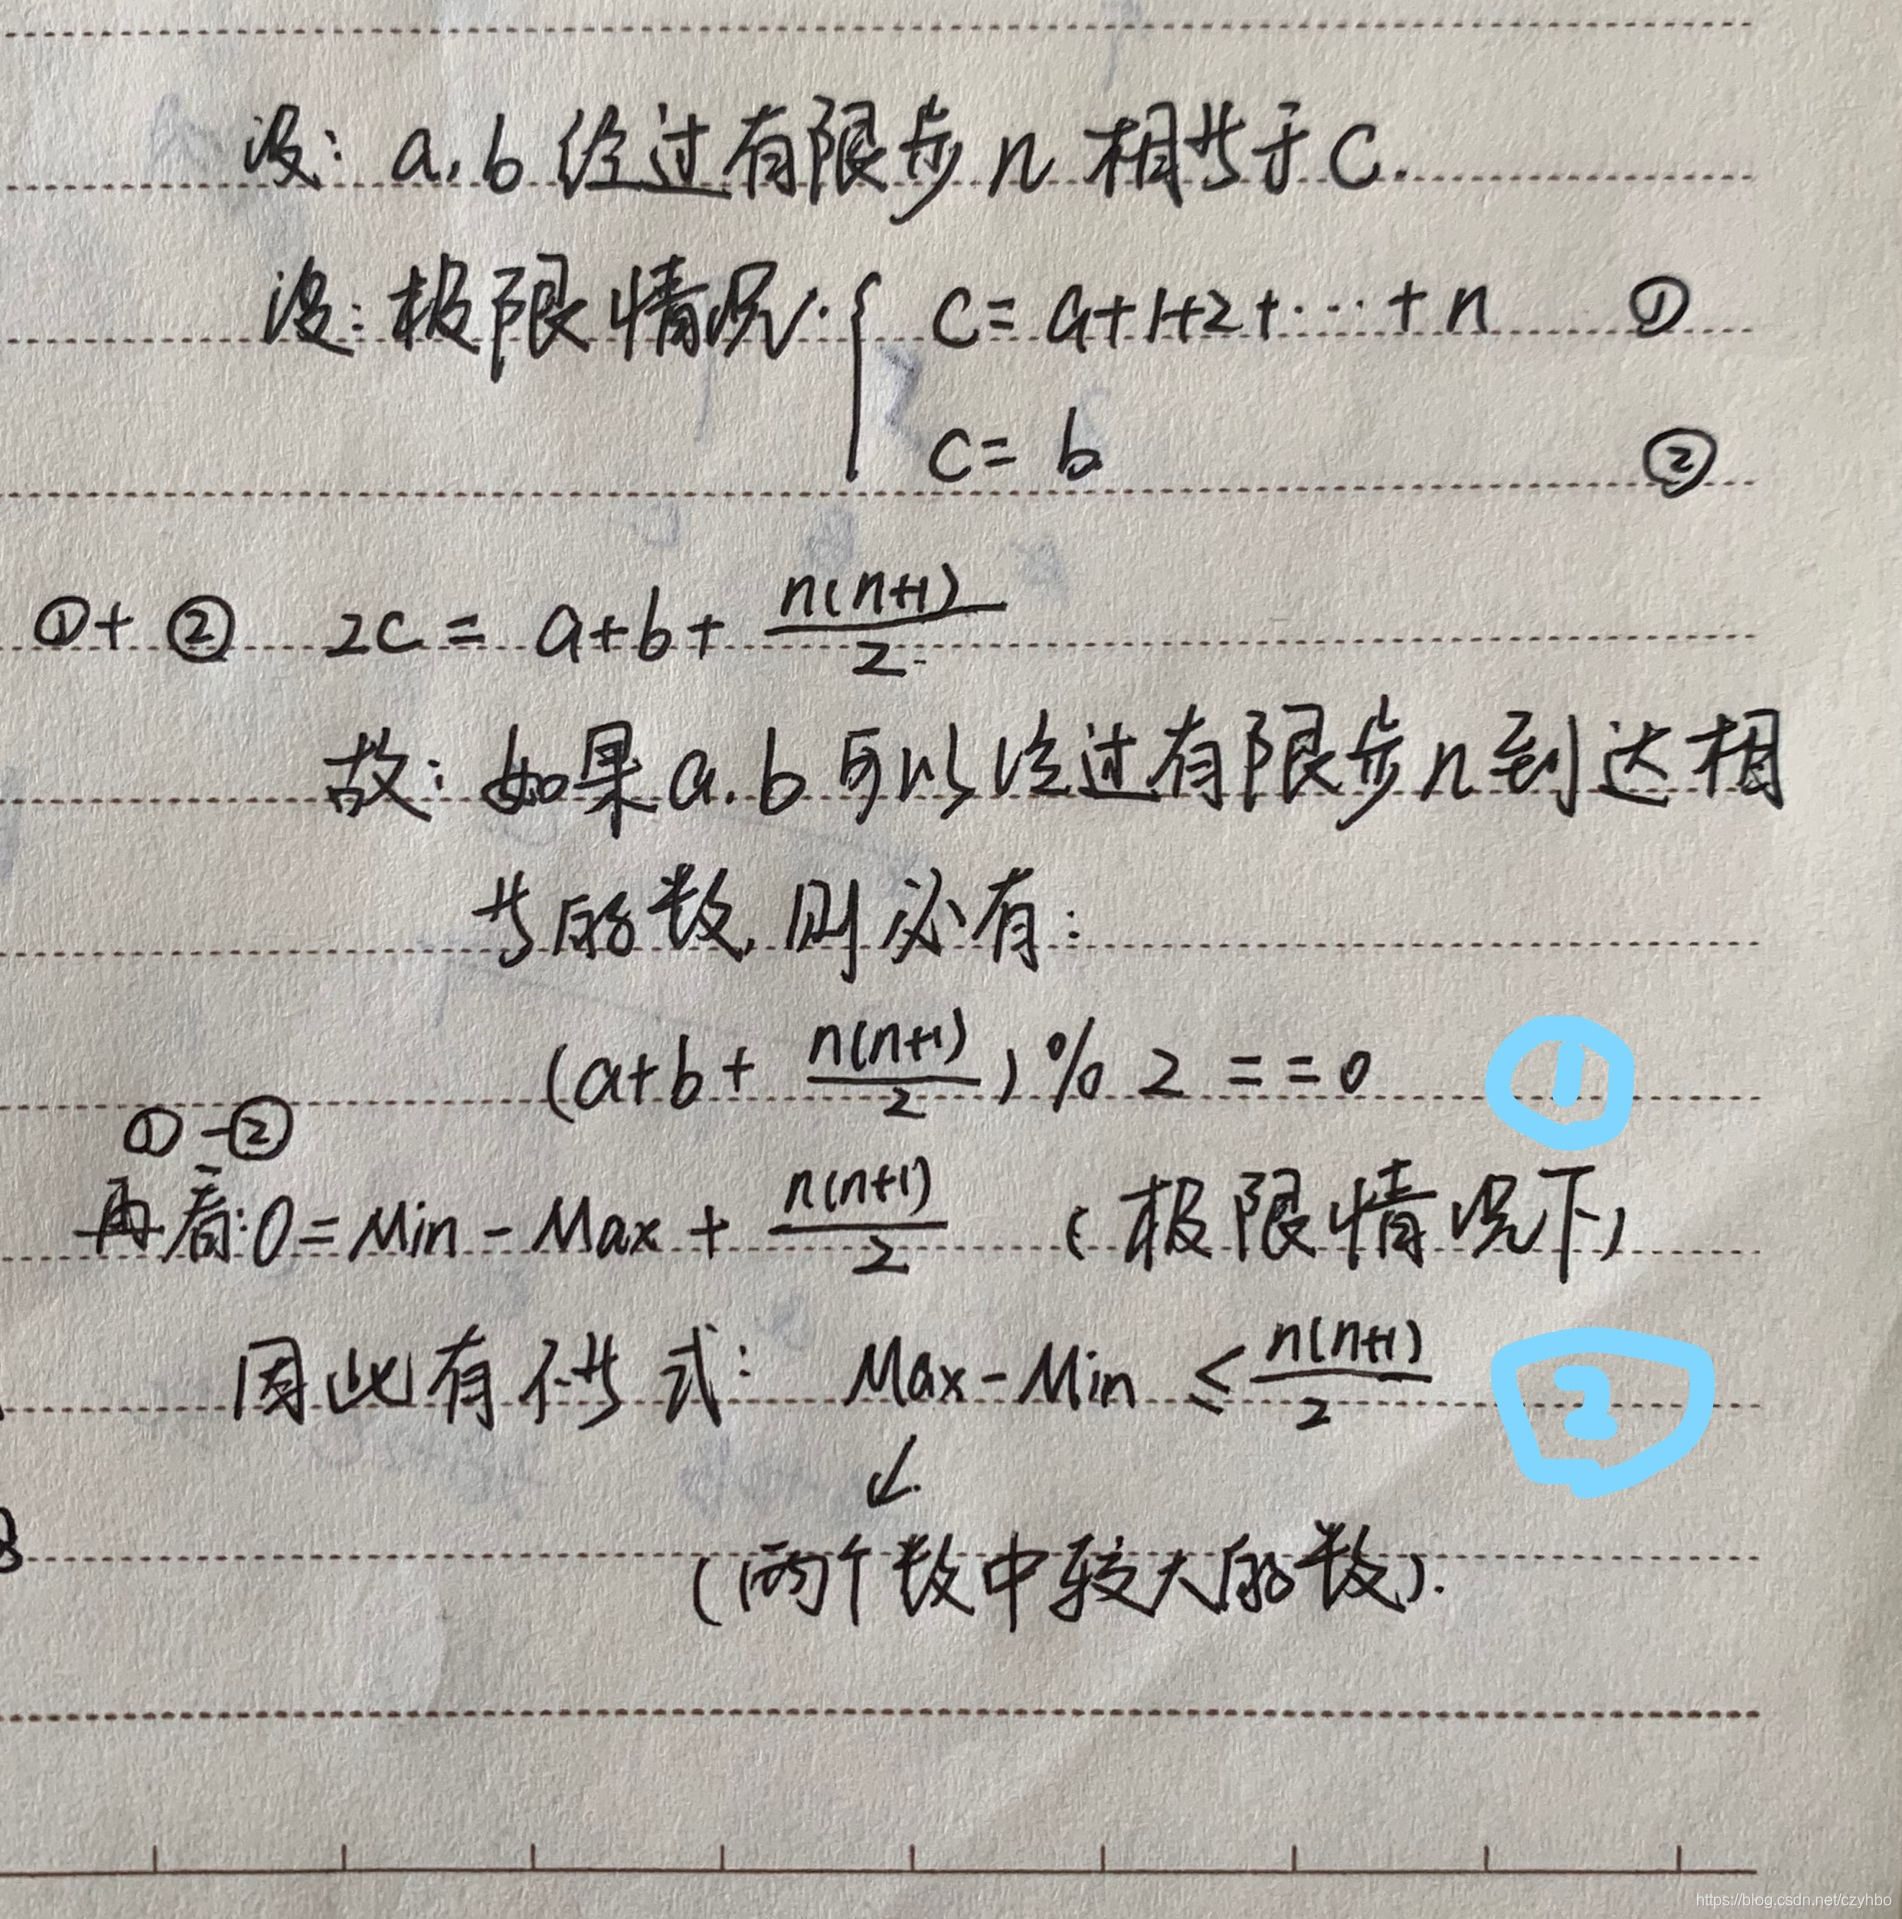 设: a,b 经过有限步 n 相等于 C.
设: 极限情况. { C = a+1+2+···+n ①
C = b ②
①+② 2C = a+b+ n(n+1)/2
故: 如果 a.b 可以经过有限步 n 到达相
等的数, 则必有:
(a+b+ n(n+1)/2) % 2 == 0 1
①-②
再看: 0 = Min - Max + n(n+1)/2 (极限情况下)
因此有不等式: Max - Min ≤ n(n+1)/2 2
↙
(两个数中较大的数).
https://blog.csdn.net/czyhbo